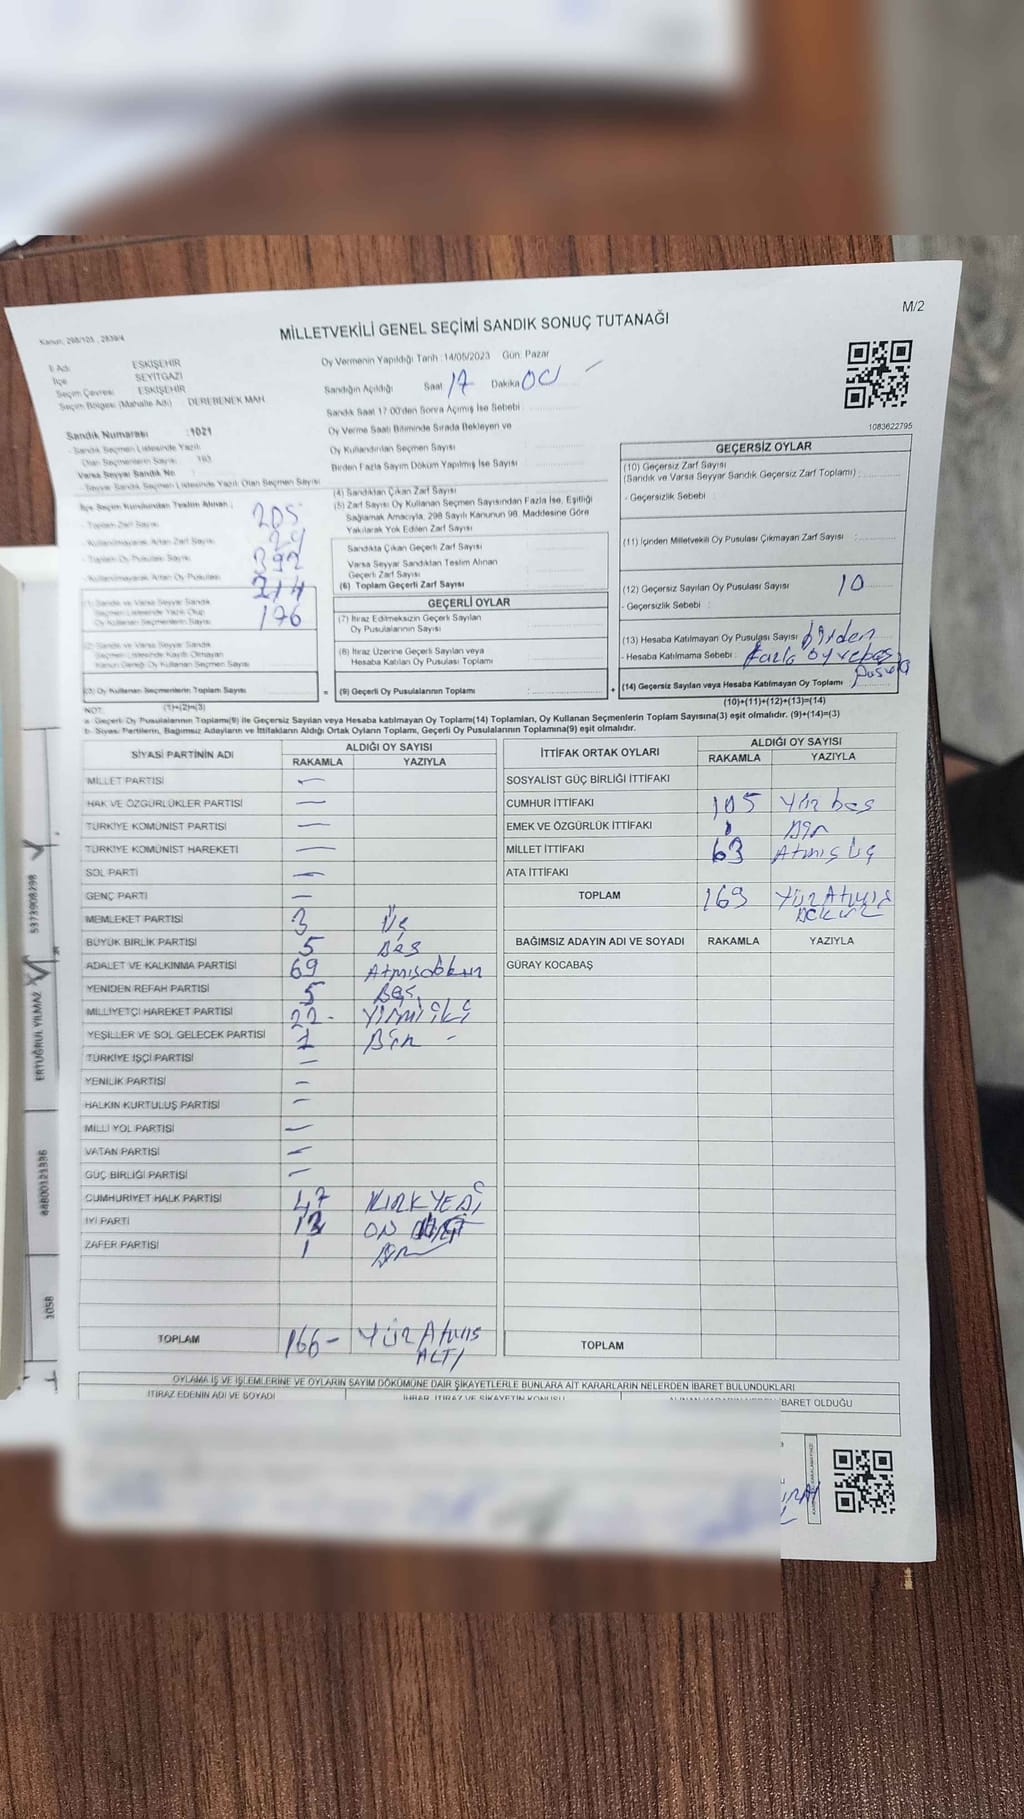 M/2
Kanun: 298/105 , 2839/4
MİLLETVEKİLİ GENEL SEÇİMİ SANDIK SONUÇ TUTANAĞI
İl Adı: ESKİŞEHİR
İlçe SEYİTGAZİ
Seçim Çevresi ESKİŞEHİR
Seçim Bölgesi (Mahalle Adı) DEREBENEK MAH.
Oy Vermenin Yapıldığı Tarih :14/05/2023 Gün: Pazar
Sandığın Açıldığı Saat 17 Dakika 00
Sandık Saat 17:00'den Sonra Açılmış İse Sebebi :
Oy Verme Saati Bitiminde Sırada Bekleyen ve
Oy Kullandırılan Seçmen Sayısı
Birden Fazla Sayım Döküm Yapılmış İse Sayısı
1083622795
Sandık Numarası :1021
- Sandık Seçmen Listesinde Yazılı
Olan Seçmenlerin Sayısı 193
Varsa Seyyar Sandık No
- Seyyar Sandık Seçmen Listesinde Yazılı Olan Seçmen Sayısı
İlçe Seçim Kurulundan Teslim Alınan ;
- Toplam Zarf Sayısı 205
- Kullanılmayarak Artan Zarf Sayısı 29
- Toplam Oy Pusulası Sayısı 392
- Kullanılmayan Artan Oy Pusulası 214
(1) Sandık ve Varsa Seyyar Sandık
Seçmen Listesinde Yazılı Olup
Oy Kullanan Seçmenlerin Sayısı 176
(2) Sandık ve Varsa Seyyar Sandık
Seçmen Listesinde Kayıtlı Olmayan
Kanun Gereği Oy Kullanan Seçmen Sayısı
(3) Oy Kullanan Seçmenlerin Toplam Sayısı
(4) Sandıktan Çıkan Zarf Sayısı
(5) Zarf Sayısı Oy Kullanan Seçmen Sayısından Fazla İse, Eşitliği
Sağlamak Amacıyla, 298 Sayılı Kanunun 98. Maddesine Göre
Yakılarak Yok Edilen Zarf Sayısı
Sandıkta Çıkan Geçerli Zarf Sayısı
Varsa Seyyar Sandıktan Teslim Alınan
Geçerli Zarf Sayısı
(6) Toplam Geçerli Zarf Sayısı
GEÇERLİ OYLAR
(7) İtiraz Edilmeksizin Geçerli Sayılan
Oy Pusulalarının Sayısı
(8) İtiraz Üzerine Geçerli Sayılan veya
Hesaba Katılan Oy Pusulası Toplamı
= (9) Geçerli Oy Pusulalarının Toplamı +
GEÇERSİZ OYLAR
(10) Geçersiz Zarf Sayısı
(Sandık ve Varsa Seyyar Sandık Geçersiz Zarf Toplamı) :
- Geçersizlik Sebebi :
(11) İçinden Milletvekili Oy Pusulası Çıkmayan Zarf Sayısı :
(12) Geçersiz Sayılan Oy Pusulası Sayısı : 10
- Geçersizlik Sebebi :
(13) Hesaba Katılmayan Oy Pusulası Sayısı : birden
- Hesaba Katılmama Sebebi : fazla oy
(14) Geçersiz Sayılan veya Hesaba Katılmayan Oy Toplamı : pusula
NOT: (1)+(2)=(3)
(10)+(11)+(12)+(13)=(14)
a- Geçerli Oy Pusulalarının Toplamı(9) ile Geçersiz Sayılan veya Hesaba katılmayan Oy Toplamı(14) Toplamları, Oy Kullanan Seçmenlerin Toplam Sayısına(3) eşit olmalıdır. (9)+(14)=(3)
b- Siyasi Partilerin, Bağımsız Adayların ve İttifakların Aldığı Ortak Oyların Toplamı, Geçerli Oy Pusulalarının Toplamına(9) eşit olmalıdır.
SİYASİ PARTİNİN ADI ALDIĞI OY SAYISI
RAKAMLA YAZIYLA
MİLLET PARTİSİ —
HAK VE ÖZGÜRLÜKLER PARTİSİ —
TÜRKİYE KOMÜNİST PARTİSİ —
TÜRKİYE KOMÜNİST HAREKETİ —
SOL PARTİ —
GENÇ PARTİ —
MEMLEKET PARTİSİ 3 Üç
BÜYÜK BİRLİK PARTİSİ 5 Beş
ADALET VE KALKINMA PARTİSİ 69 Atmışdokuz
YENİDEN REFAH PARTİSİ 5 Beş
MİLLİYETÇİ HAREKET PARTİSİ 22- Yirmi iki
YEŞİLLER VE SOL GELECEK PARTİSİ 1 Bir -
TÜRKİYE İŞÇİ PARTİSİ —
YENİLİK PARTİSİ —
HALKIN KURTULUŞ PARTİSİ —
MİLLİ YOL PARTİSİ —
VATAN PARTİSİ —
GÜÇ BİRLİĞİ PARTİSİ —
CUMHURİYET HALK PARTİSİ 47 KIRK YEDİ
İYİ PARTİ ON
ZAFER PARTİSİ 1 Bir
TOPLAM 166- Yüz Atmış
ALTI
İTTİFAK ORTAK OYLARI ALDIĞI OY SAYISI
RAKAMLA YAZIYLA
SOSYALİST GÜÇ BİRLİĞİ İTTİFAKI
CUMHUR İTTİFAKI 105 Yüz beş
EMEK VE ÖZGÜRLÜK İTTİFAKI 1 Bir
MİLLET İTTİFAKI 63 Atmış üç
ATA İTTİFAKI
TOPLAM 169 Yüz Atmış
Dokuz
BAĞIMSIZ ADAYIN ADI VE SOYADI RAKAMLA YAZIYLA
GÜRAY KOCABAŞ
TOPLAM
OYLAMA İŞ VE İŞLEMLERİNE VE OYLARIN SAYIM DÖKÜMÜNE DAİR ŞİKAYETLERLE BUNLARA AİT KARARLARIN NELERDEN İBARET BULUNDUKLARI
İTİRAZ EDENİN ADI VE SOYADI İHBAR, İTİRAZ VE ŞİKAYETİN KONUSU BARET OLDUĞU
ERTUĞRUL YILMAZ 5373908298
1058